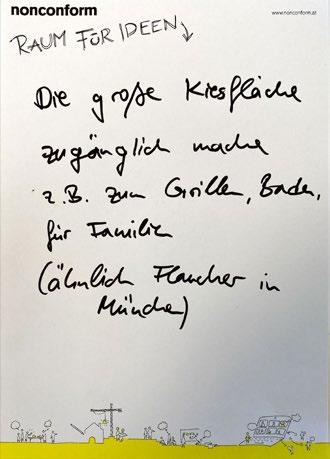 nonconform
www.nonconform.at
RAUM FÜR IDEEN
Die große Kiesfläche
zugänglich mache
z.B. zum Grillen, Baden,
für Familien
(ähnlich Flaucher in
München)